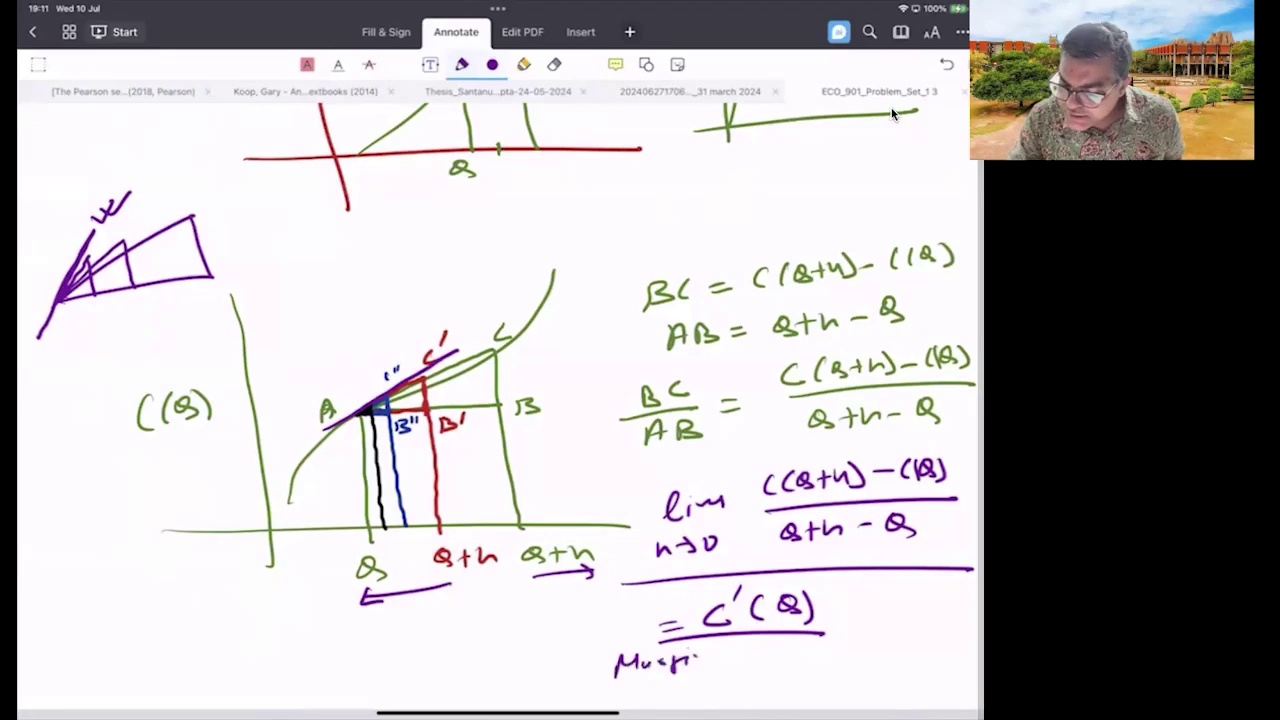 19:11 Wed 10 Jul
100%
Start
Fill & Sign Annotate Edit PDF Insert
[The Pearson se...(2018, Pearson) Koop, Gary - An...extbooks (2014) Thesis_Santanu...pta-24-05-2024 202406271706..._31 march 2024 ECO_901_Problem_Set_1 3
Q
BC = C(Q+h) - C(Q)
AB = Q+h - Q
BC/AB = C(Q+h) - C(Q) / Q+h - Q
C(Q)
A C'' C' C
B'' B' B
lim h→0 C(Q+h) - C(Q) / Q+h - Q
Q Q+h Q+h
= C'(Q)
Margi